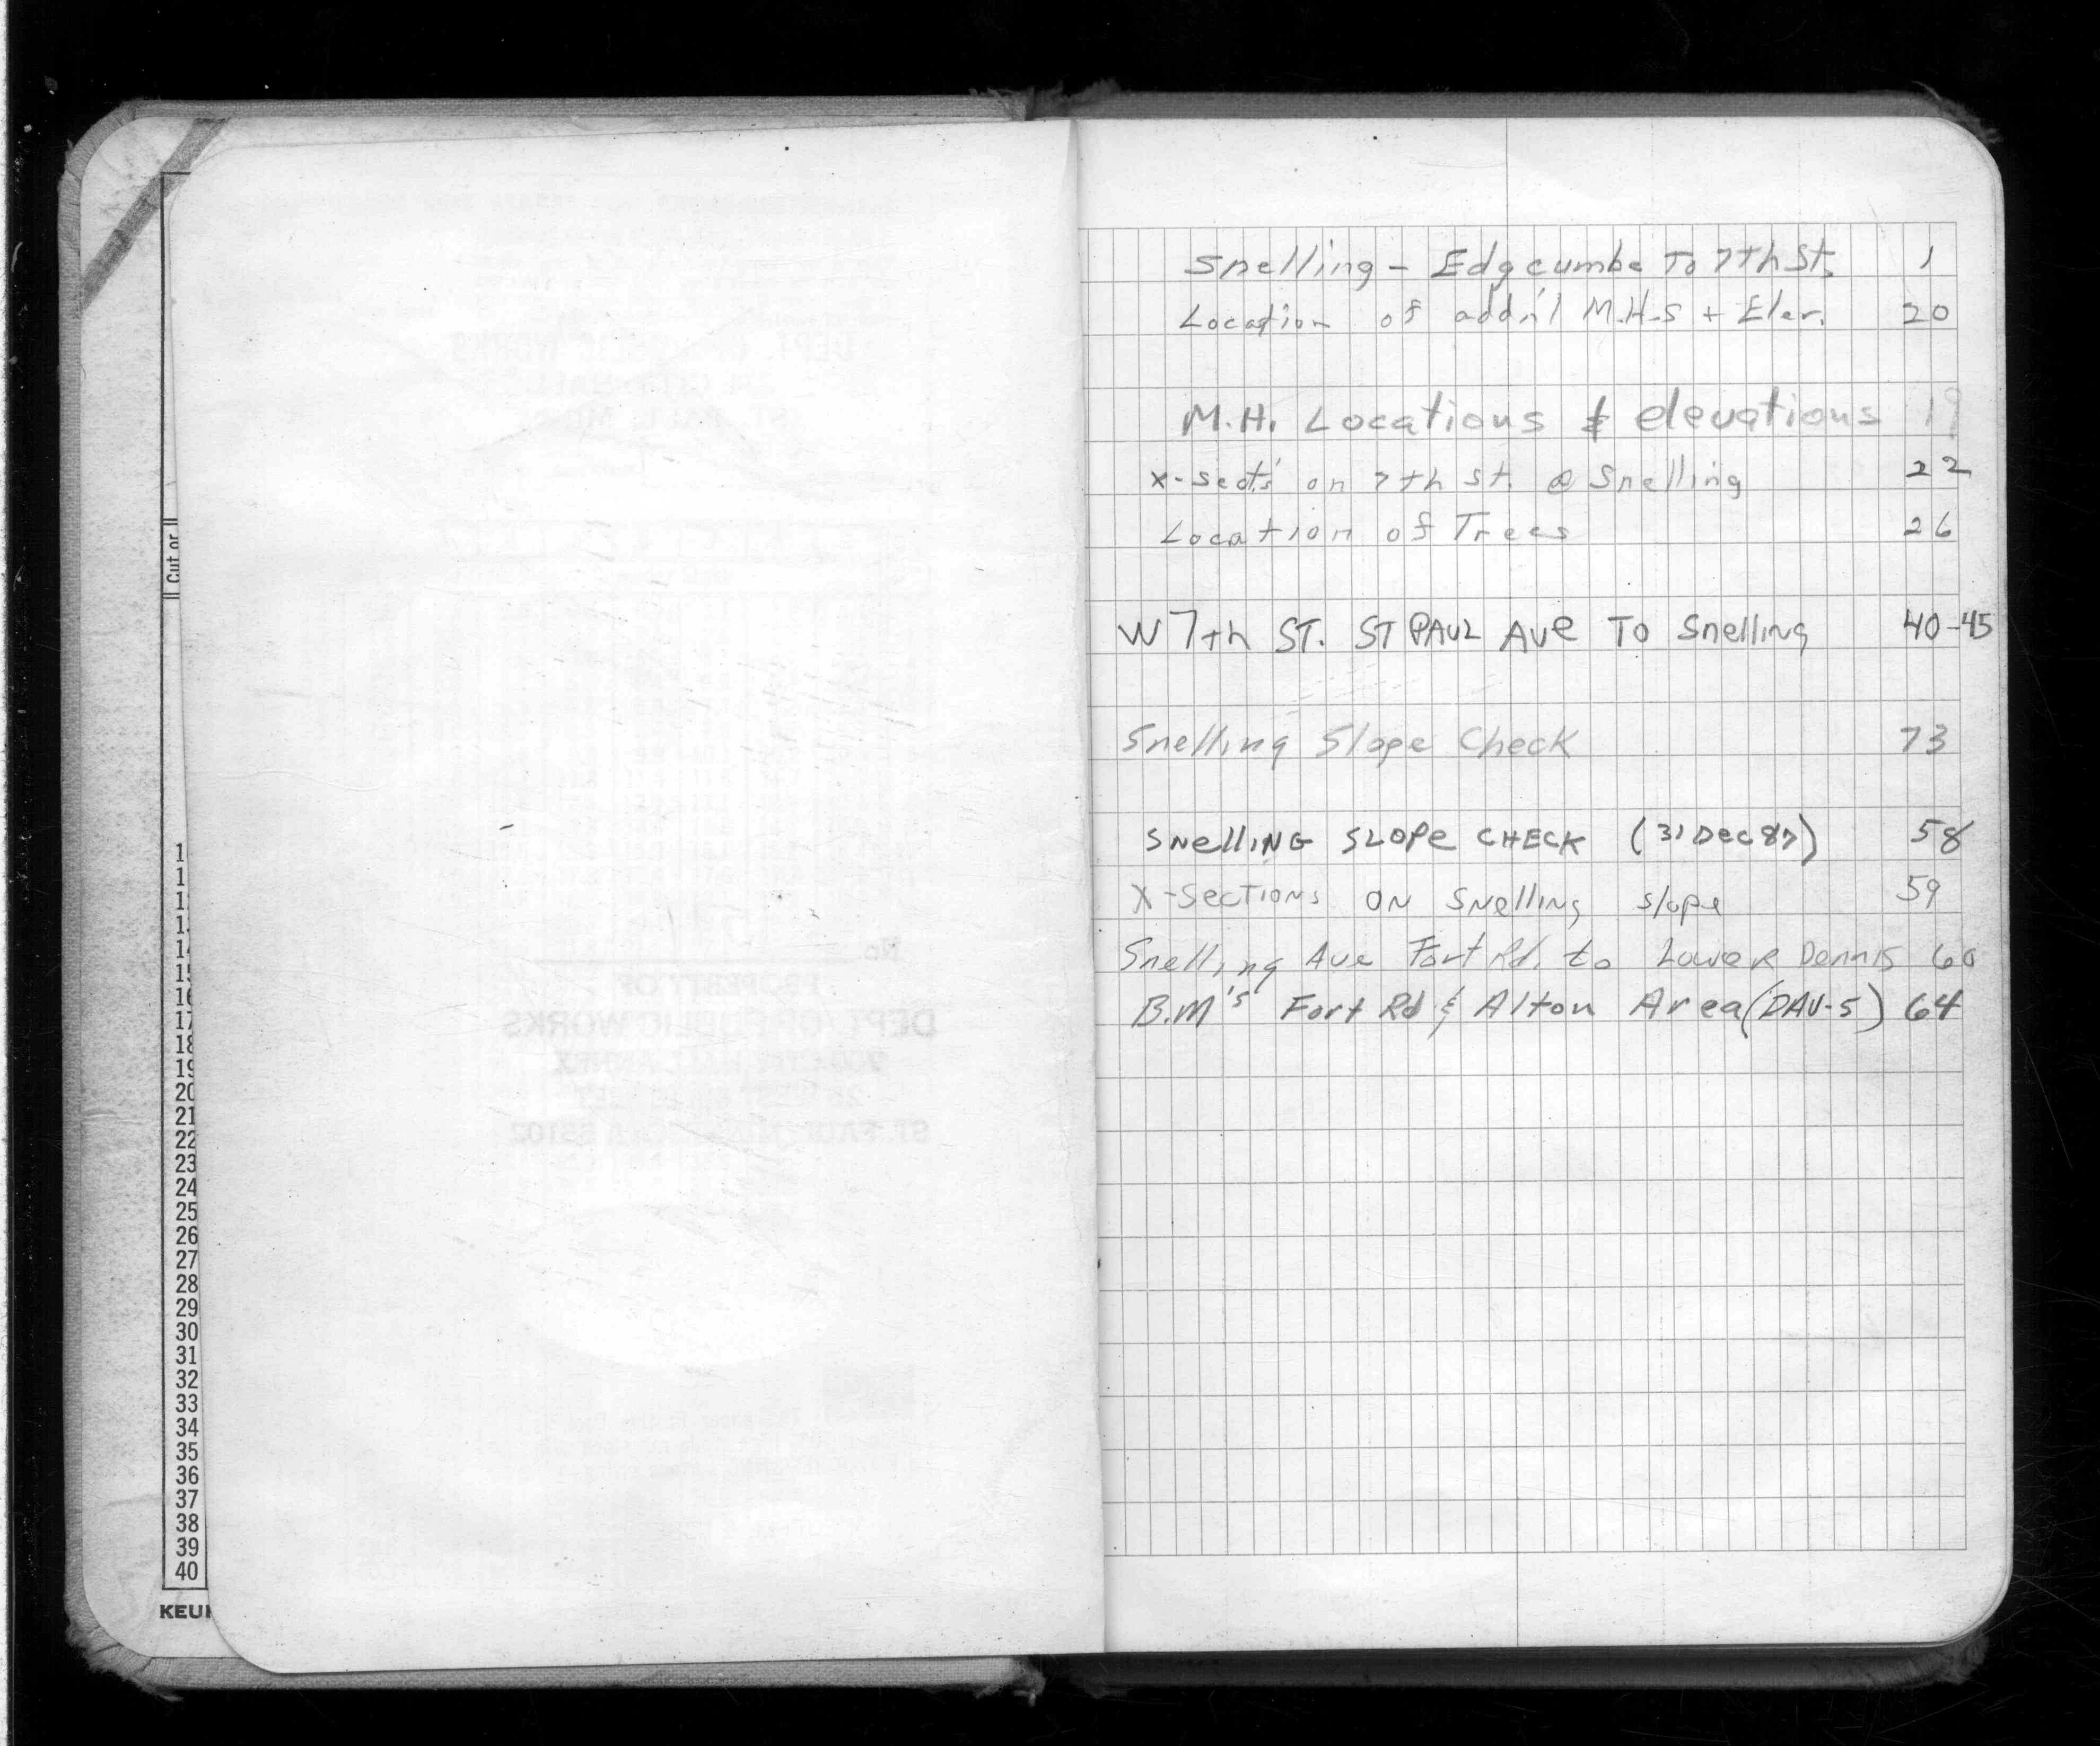 Cut or
1
1
1
1
14
15
16
17
18
19
20
21
22
23
24
25
26
27
28
29
30
31
32
33
34
35
36
37
38
39
40
KEU
Snelling - Edgcumbe To 7th St. 1
Location of addn'l M.H.S + Elev. 20
M.H. Locations & elevations 19
x-sect's on 7th St. @ Snelling 22
Location of Trees 26
W 7th ST. ST PAUL Ave To Snelling 40-45
Snelling Slope Check 73
SNelliNG SLOPe CHECK (31 Dec 87) 58
X-SecTioNs ON SNelliNg slope 59
Snelling Ave Fort Rd. to Lower Dennis 60
B.M's Fort Rd & Alton Area (DAV-5) 64